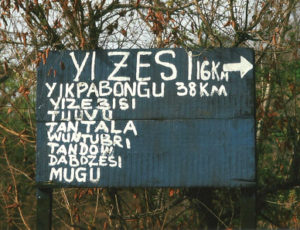 YIZESI 16KM
YIKPABONGU 38KM
YIZEBISI
TUUVU
TANTALA
WUNTUBRI
TANDOW
DABOZESI
MUGU